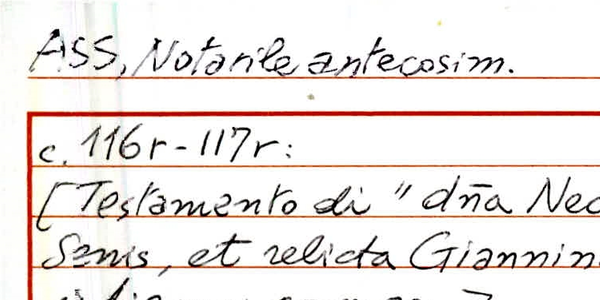 ASS, Notarile antecosim.
c. 116r-117r:
[Testamento di "dña Nec
Senis, et relicta Giannin